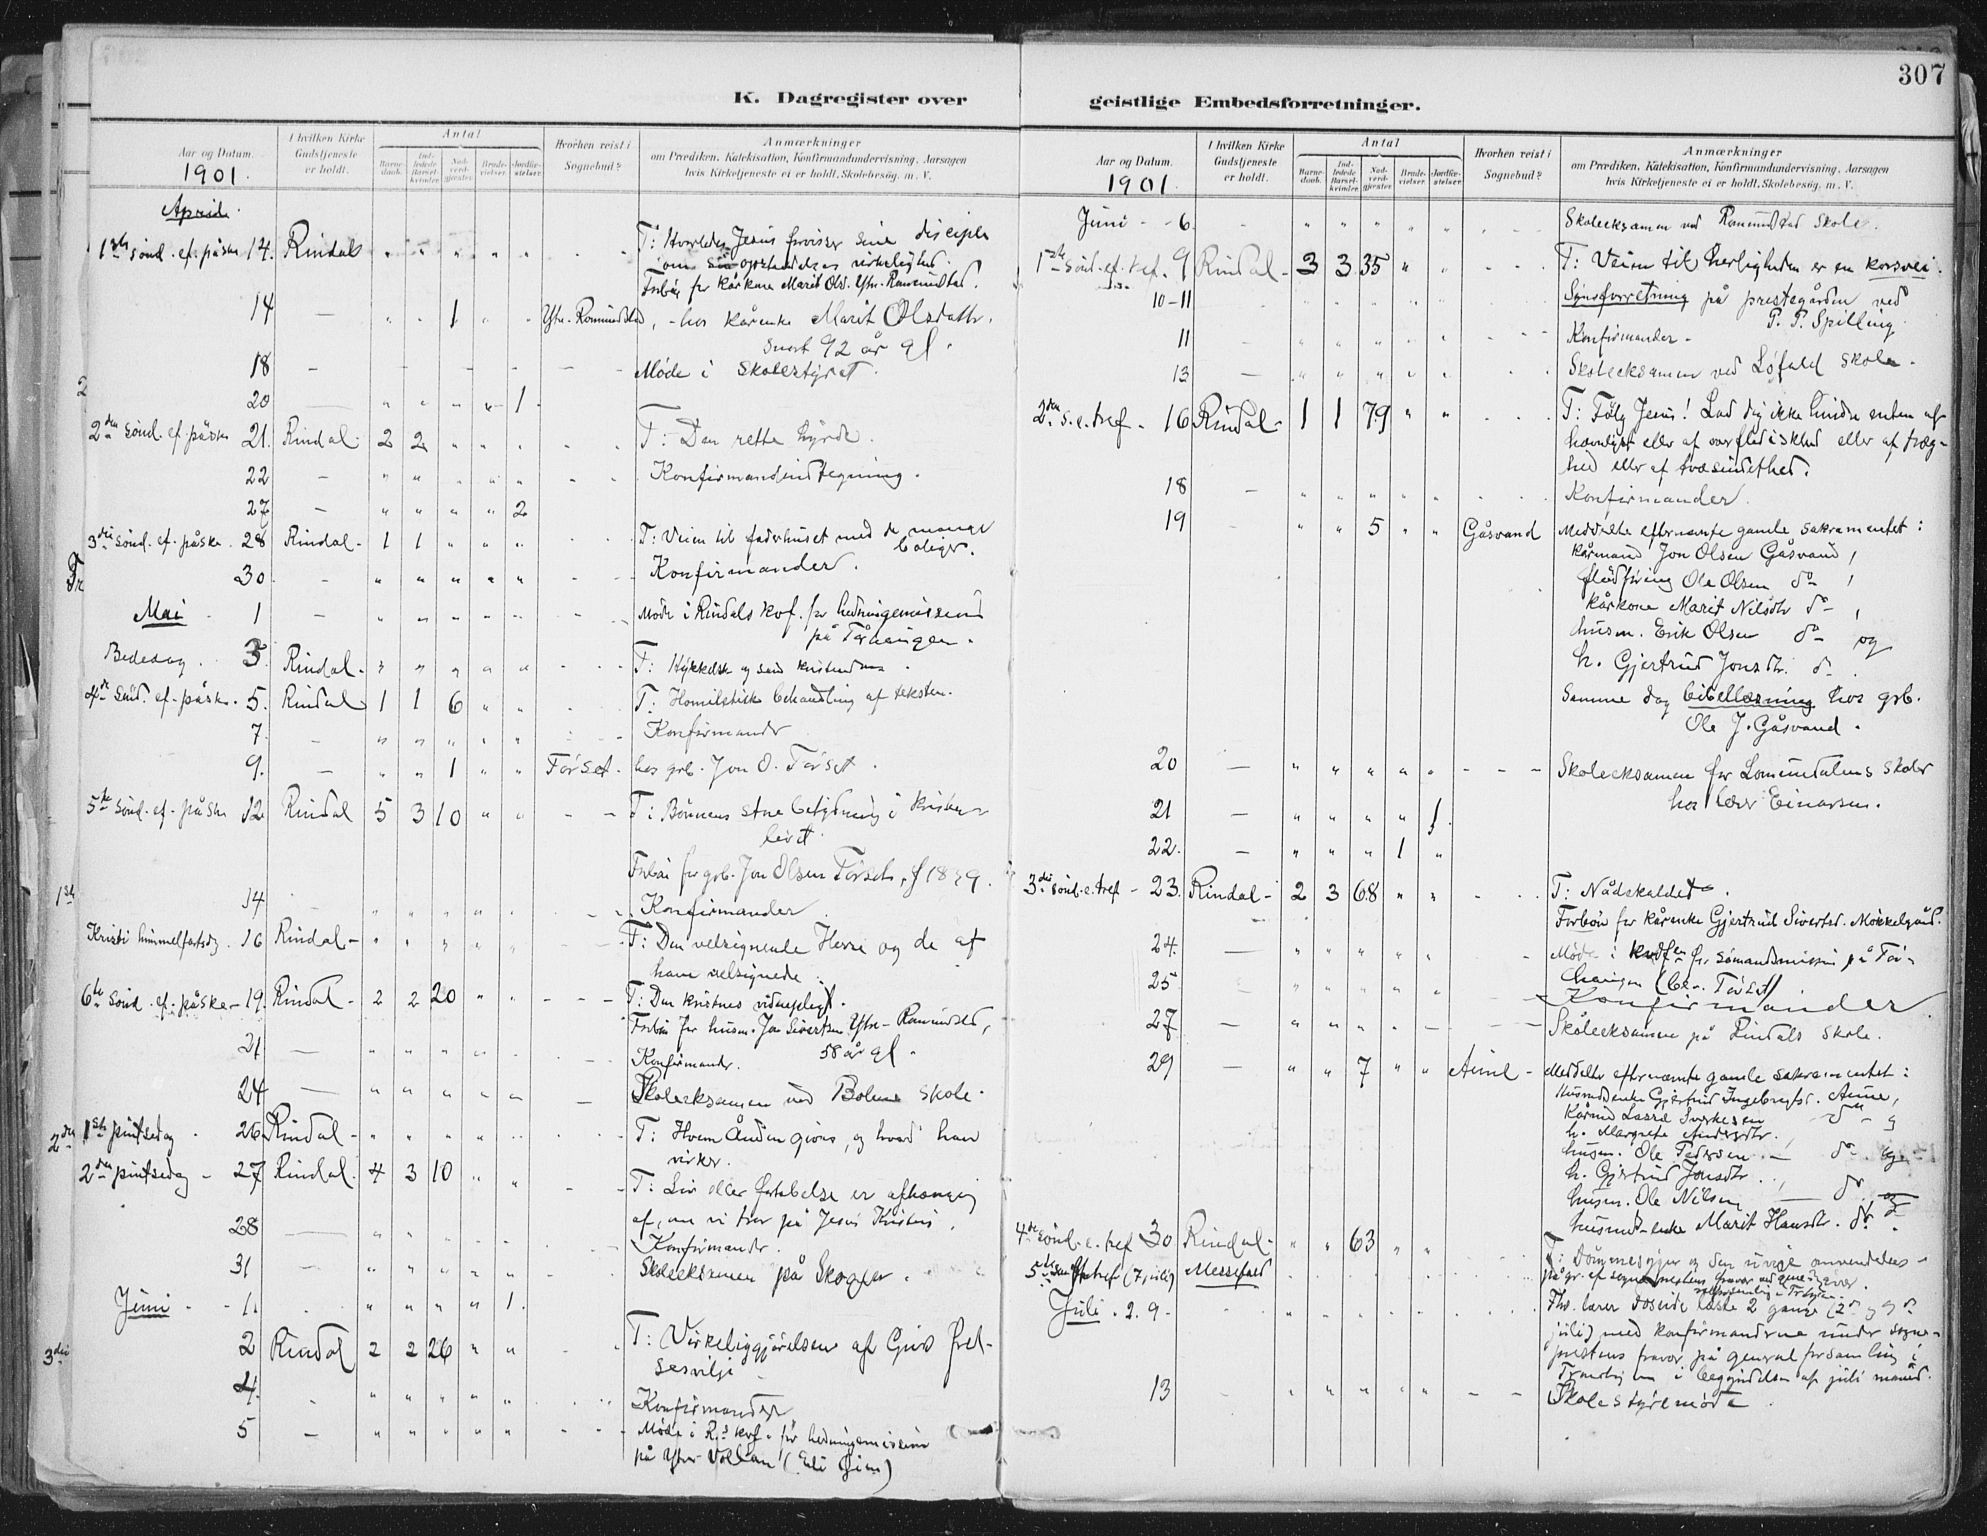 307
K. Dagregister over geistlige Embedsforretninger.
Aar og Datum.
1901.
I hvilken Kirke Gudstjeneste er holdt.
Antal
Barne-daab.
Ind-ledede Barsel-kvinder.
Nad-verd-gjester.
Brude-vielser.
Jordfæ-stelser.
Hvorhen reist i Sognebud?
Anmærkninger
om Prædiken, Katekisation, Konfirmandundervisning, Aarsagen
hvis Kirketjeneste ei er holdt, Skolebesøg, m. V.
April.
1ste sønd. ef. påske 14. Rindal " " " " " T: Hvorledes Jesus forvisser sine disciple
om sin opstandelses virkelighed.
Forbøn for kårkone Marit Olsd. Ytre-Romundstad.
14 — " " 1 " " Ytre-Romundstad, - hos kårenke Marit Olsdatter.
snart 92 år gl.
18 - - - - - - Møde i Skolestyret.
20 — " " " " 1.
2den sønd. ef. påske 21. Rindal 2 2 " " " T: Den rette hyrde.
22 — " " " " " Konfirmandindtegning.
27 — " " " " 2
3die sønd. ef. påske. 28 Rindal - 1 1 " " " T: Veien til faderhuset med de mange
boliger.
30 - " " " " " Konfirmander.
Mai 1 — " " " " " Møde i Rindals kvf. for hedningemissionen
på Tørhaugen.
Bededag. 3. Rindal - " " " " " T:
4de sønd. ef. påske. 5. Rindal 1 1 6 " " T: Homiletisk behandling af teksten.
7. — " " " " " Konfirmander
9. — " " 1 " " Tørset. hos grb. Jon O. Tørset.
5te sønd. ef. påske 12 Rindal 5 3 10 " " T: Bønnens store betydning i kristen-
livet.
Forbøn for grb. Jon Olsen Tørset, f 1829.
14 - " " " " " Konfirmander.
Kristi himmelfartsdag. 16 Rindal - " " " " " T: Den velsignende Herre og de af
ham velsignede.
6te sønd. ef. påske - 19. Rindal - 2 2 20 " " T: Den kristnes vidnepligt.
Forbøn for husm. Jon Sivertsen Ytre-Romundstad,
58 år gl.
21 — " " " " " Konfirmander.
24 — " " " " " Skoleeksamen ved Bolme skole.
1ste pintsedag. 26. Rindal - " " " " " T: Hvem Ånden gives, og hvad han
virker.
2den pintsedag - 27 Rindal. 4 3 10 " " T: Liv eller fortabelse er afhængig
af, om vi tror på Jesus Kristus.
28 — " " " " " Konfirmander.
31 — " " " " " Skoleeksamen på Skoger.
Juni - - 1. " " " " 1.
2 Rindal 2 2 26 " " T: Virkeliggjørelsen af Guds frel-
sesvilje
4. - " " " " " Konfirmander
5 — " " " " " Møde i R.s kvf. for hedningemissionen
på Ytre Vollan
Aar og Datum.
1901.
I hvilken Kirke Gudstjeneste er holdt.
Antal
Barne-daab.
Ind-ledede Barsel-kvinder.
Nad-verd-gjester.
Brude-vielser.
Jordfæ-stelser.
Hvorhen reist i Sognebud?
Anmærkninger
om Prædiken, Katekisation, Konfirmandundervisning, Aarsagen
hvis Kirketjeneste ei er holdt, Skolebesøg, m. V.
Juni - - 6. - " " " " " Skoleeksamen ved Romundstad skole.
1ste sønd. ef. tref. 9 Rindal - 3 3 35 " " T: Veien til herligheden er en korsvei.
10-11 Synsforretning på prestegården ved
P. P. Spilling.
11 — " " " " " Konfirmander.
13 — " " " " " Skoleeksamen ved Løfald skole.
2den s. e. tref. - 16 Rindal - 1 1 79 " " T: Følg Jesus! Lad dig ikke hindre enten af
eller af eller af træg-
hed eller af tvesindethed.
18 — " " " " " Konfirmander.
19 " " 5 " " Gåsvand Meddelte efternævnte gamle sakramentet:
kårmand Jon Olsen Gåsvand,
Ole Olsen do ,
kårkone Marit Nilsdtr do ,
husm. Erik Olsen do og
h. Gjertrud Jonsdtr. do.
Samme dag bibellæsning hos grb.
Ole J. Gåsvand.
20 — " " " " " Skoleeksamen for Lomundalens skoler
hos lærer Einarsen.
21 — " " " " 1.
22. — " " " 1 "
3die sønd. e. tref - 23. Rindal - 2 3 68 " " T: Nådskaldet.
Forbøn for kårenke Gjertrud Sivertsd. Møkkelgård.
24. — " " " " " Møde i kvf. for sømandsmissionen på Tør-
haugen
25 " " " " " Konfirmander
27 — " " " " — Skoleeksamen på Rindals skole.
29 — " " 7 " " Aune - Meddelte efternævnte gamle sakramentet:
Husmandsenke Gjertrud Ingebrigtsd. Aune,
do og
h. Margrete Andersdtr.,
husm. Ole Pedersen — do og
h. Gjertrud Jonsdtr.,
husm. Ole Nilsen — do og
husmds-enke Marit Hansdtr. do.
4de sønd. e. tref 30 Rindal - " " 63 " " T: Dommesyger og den urige anvendelse
5te søn. e. tref (7 juli) Messefald på gr. af sogneprestens fravær ved gene-
Juli. 2. 9 - Fhv. lærer læste 2 gange (2den og 9de
juli) med konfirmanderne under sogne-
prestens fravær på generalforsamling i
i begyndelsen af juli måned.
13 — " " " " " Skolestyremøde